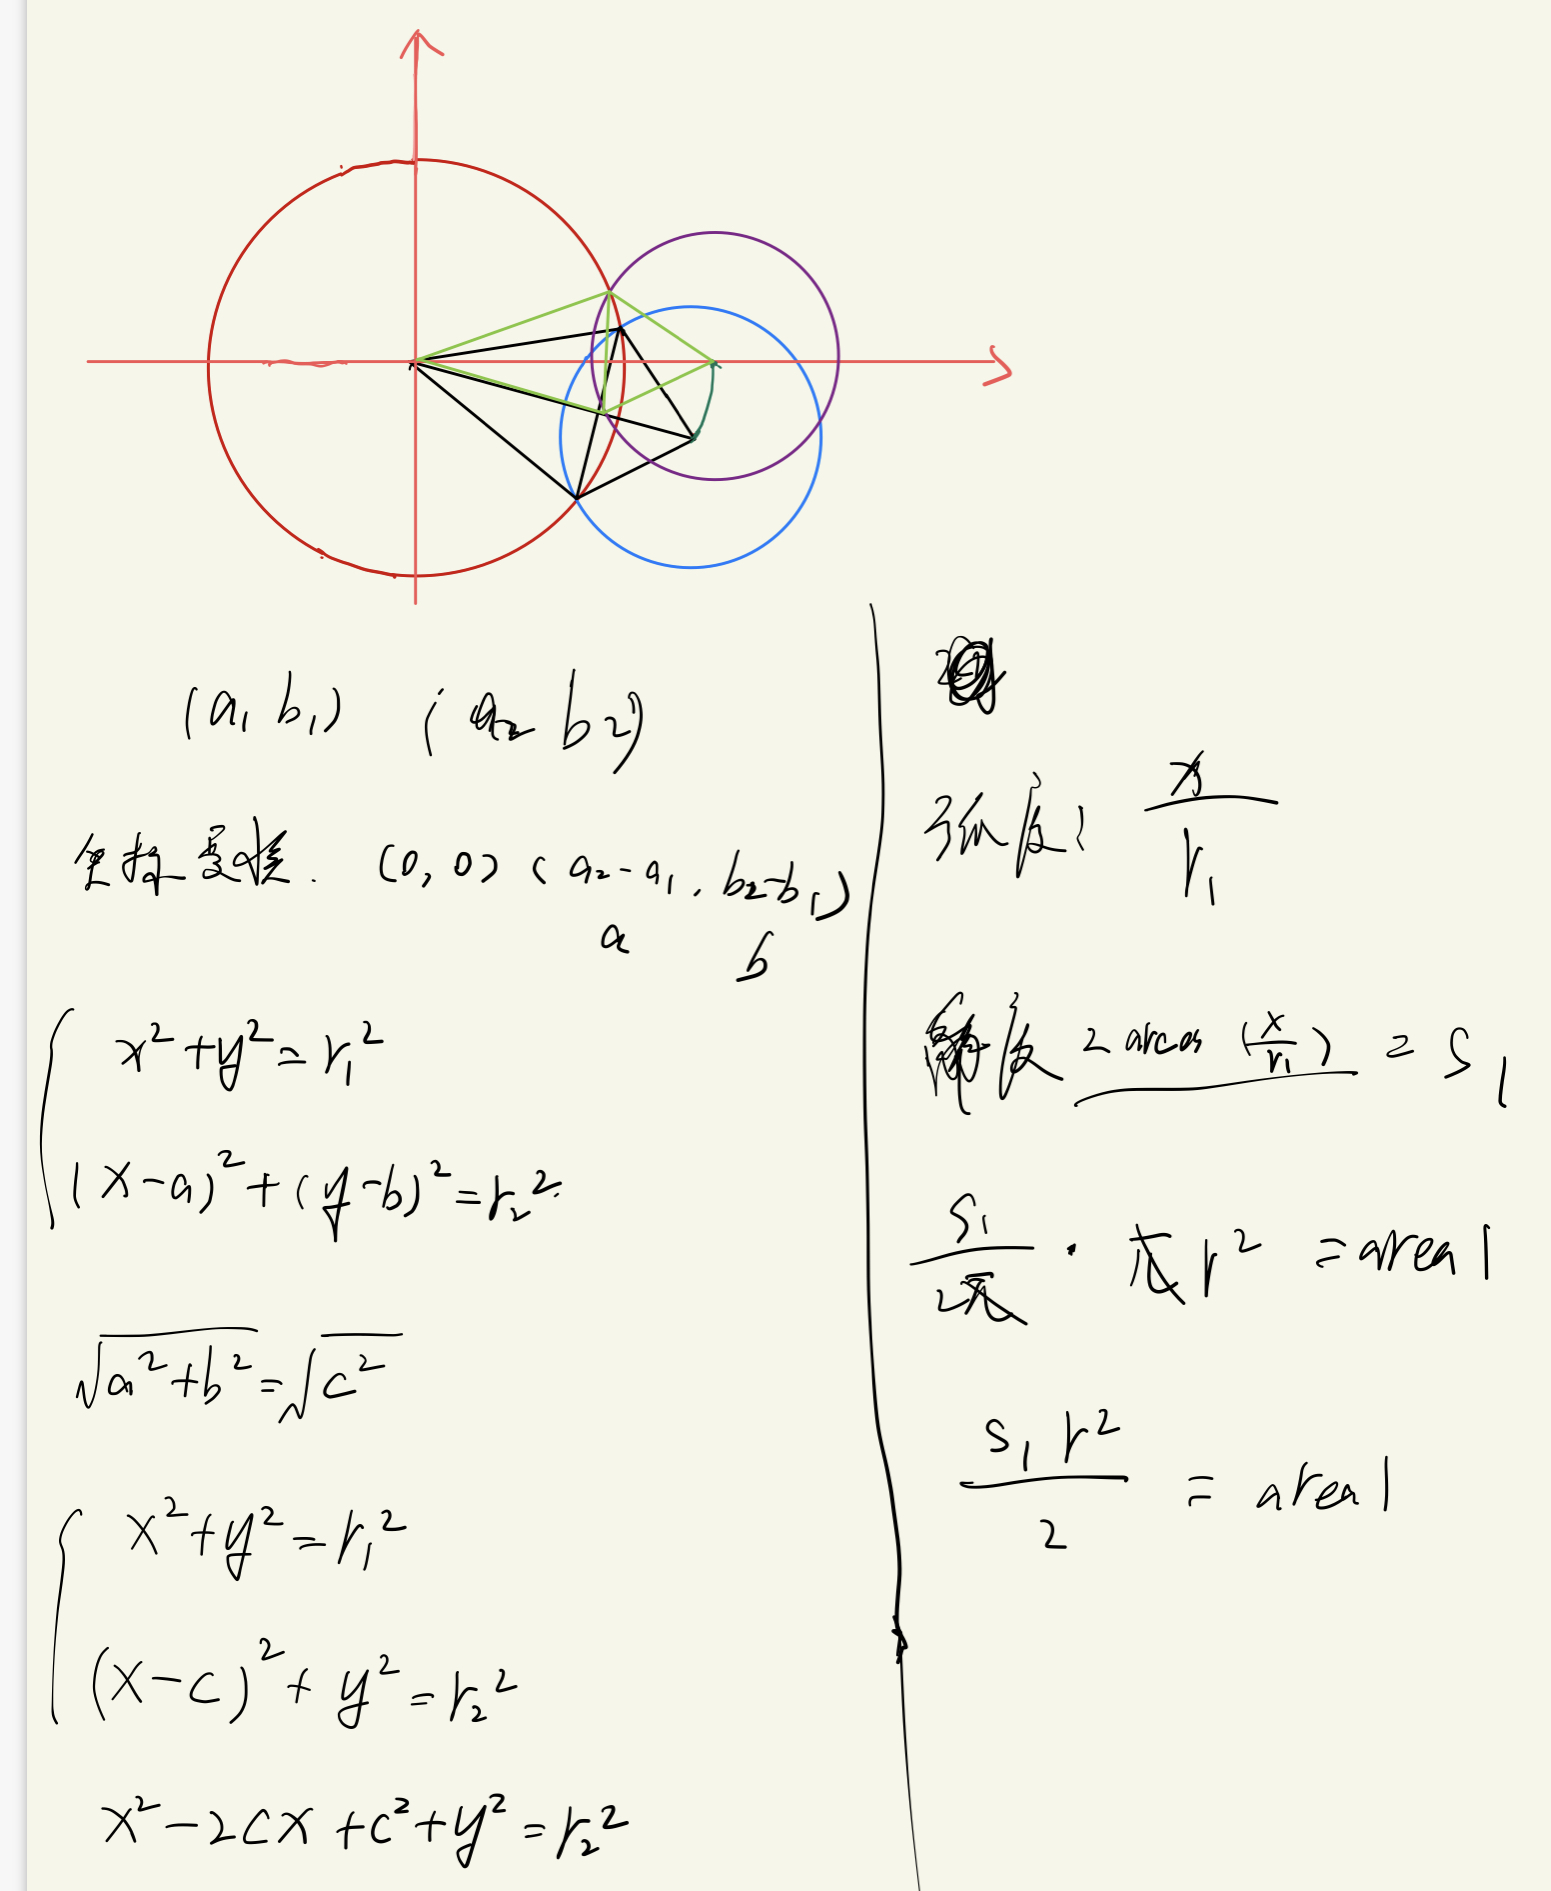 (a₁ b₁) (a₂ b2)
坐标变换. (0, 0) (a₂-a₁, b₂-b₁)
a b
x²+y²=r₁²
(x-a)²+(y-b)²=r₂²
√(a²+b²)=√(c²)
x²+y²=r₁²
(x-c)²+y²=r₂²
x²-2cx+c²+y²=r₂²
弧度: x/r₁
度 2 arccos (x/r₁) = S₁
S₁/2π · πr² = area1
S₁r²/2 = area1